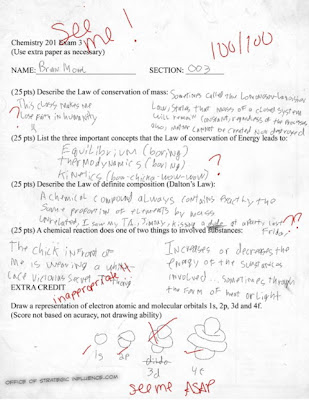 see me!
Chemistry 201 Exam 3
(Use extra paper as necessary)
100/100
NAME: Brian Mond SECTION: 003
(25 pts) Describe the Law of conservation of mass: Sometimes called the Lomonosov-Lavoisier
Law, states that mass of a closed system
will remain constant, regardless of the process
also, matter cannot be created nor destroyed
This class makes me
lose faith in humanity
?
(25 pts) List the three important concepts that the Law of conservation of Energy leads to:
Equilibrium (boring)
Thermodynamics (boring)
Kinetics (bom-chicka-wow-wow)
?
(25 pts) Describe the Law of definite composition (Dalton's Law):
A chemical compound always contains exactly the
same proportion of elements by mass
unrelated, I saw my TA, Jimmy, kissing a dude at a party last
Friday
??
(25 pts) A chemical reaction does one of two things to involved substances:
The chick in front of
me is wearing a white
lace Victorias Secret Thong
Increases or decreases the
energy of the substances
involved... sometimes through
the form of heat or light
inappropriate!
EXTRA CREDIT
Draw a representation of electron atomic and molecular orbitals 1s, 2p, 3d and 4f.
(Score not based on acuracy, not drawing ability)
1s 2p 3d 4f
see me ASAP
OFFICE OF STRATEGIC INFLUENCE.COM